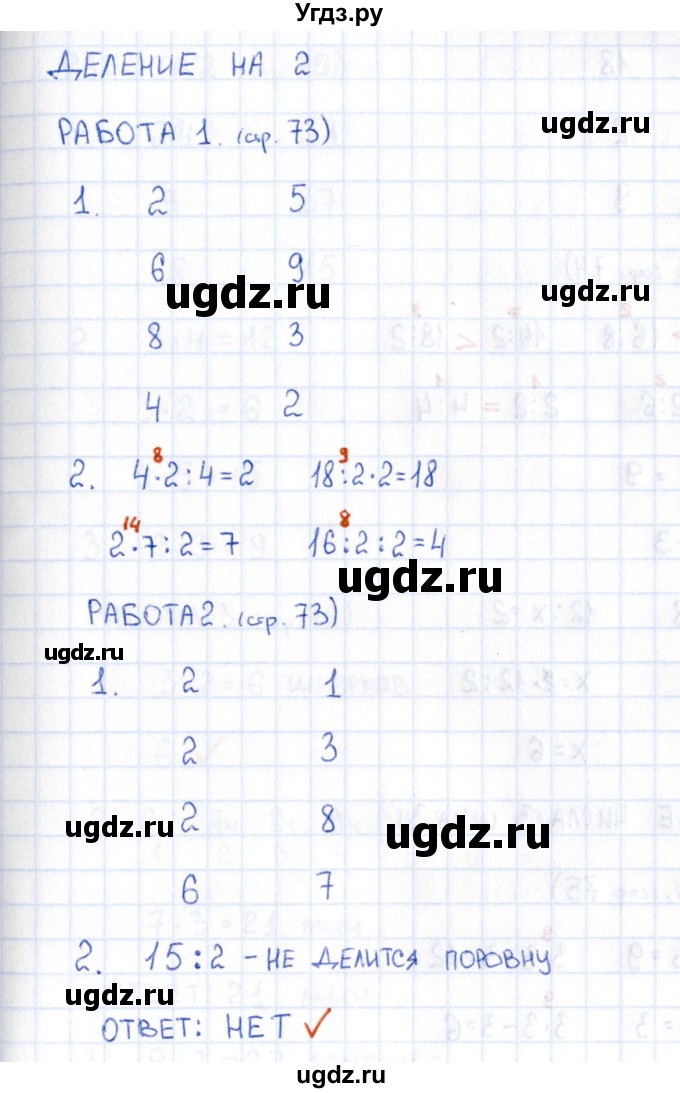 Угдз.ру
ДЕЛЕНИЕ НА 2
ugdz.ru
РАБОТА 1. (стр. 73)
1. 2 5
6 9
ugdz.ru ugdz.ru
8 3
4 2
8 9
2. 4·2:4=2 18:2·2=18
14 8
2·7:2=7 16:2:2=4
ugdz.ru
РАБОТА 2. (стр. 73)
ugdz.ru
1. 2 1
2 3
ugdz.ru 2 8 ugdz.ru
6 7
2. 15:2 - НЕ ДЕЛИТСЯ ПОРОВНУ
ugdz.ru ugdz.ru
ОТВЕТ: НЕТ ✓
ugdz.ru